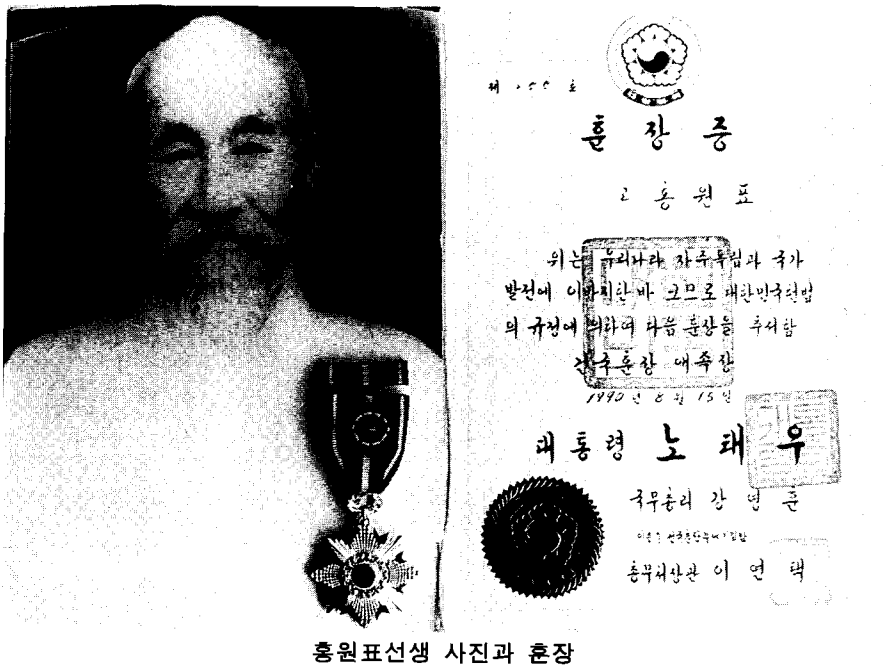 훈장증
고 홍원표
위는 우리나라 자주독립과 국가
발전에 이바지한바 크므로 대한민국헌법
의 규정에 의하여 다음 훈장을 추서함
건국훈장 애족장
1990년 8월 15일
대통령 노태우
국무총리 강영훈
총무처장관 이연택
홍원표선생 사진과 훈장